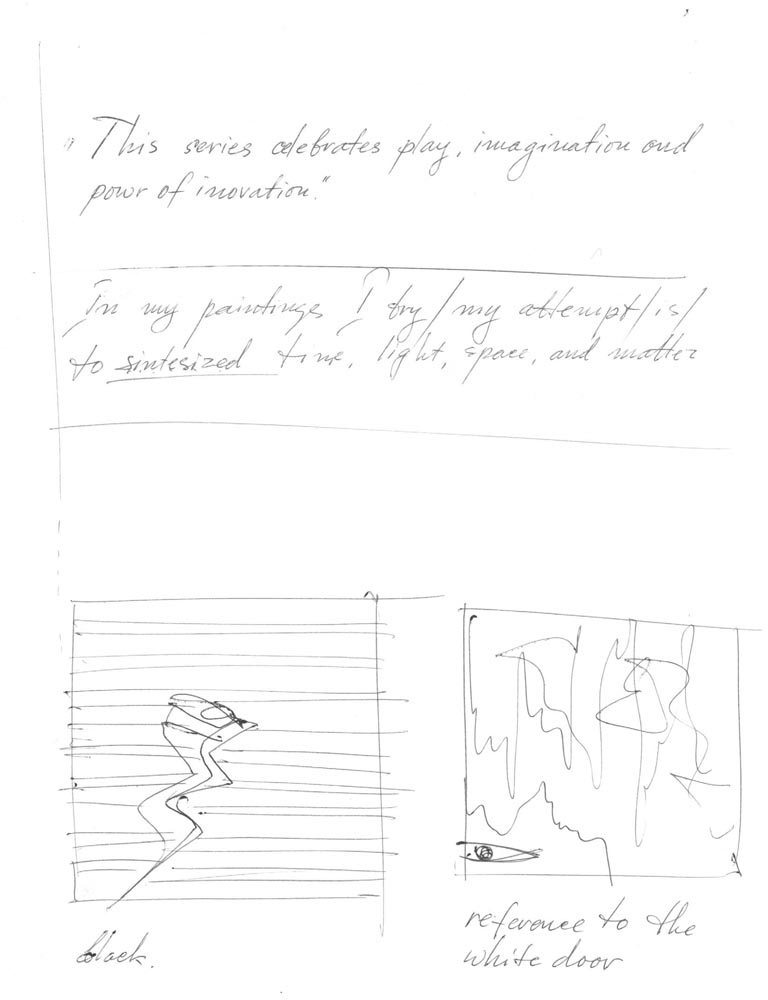 "This series celebrates play, imagination and
powr of inovation."
In my paintings I try/my attempt/is/
to sintesized time, light, space, and matter
black.
reference to the
white door